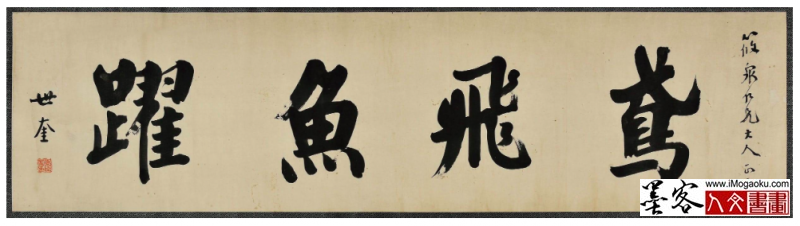 鳶飛魚躍
筱泉九兄大人正
世奎
墨客
www.iMogaoku.com
人文書畫